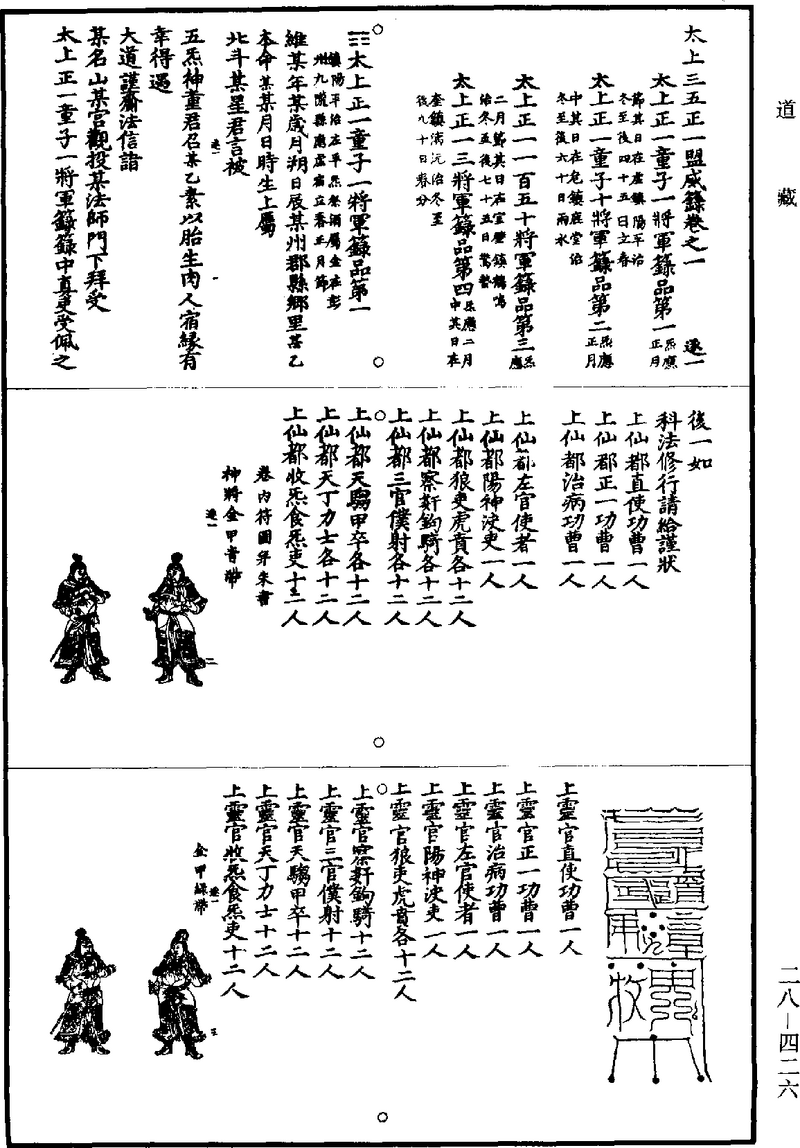 道藏
太上三五正一盟威籙卷之一 逐一
太上正一童子一將軍籙品第一 炁應正月
節其日在虛鎮陽平治
冬至後四十五日立春
太上正一童子十將軍籙品第二 炁應正月
中其日在危鎮鹿堂治
冬至後六十日雨水
太上正一一百五十將軍籙品第三 炁應
二月節其日在室壁鎮鶴鳴
治冬至後七十五日驚蟄
太上正一三將軍籙品第四 炁應二月中其日在
奎鎮漓沅治冬至
後九十日春分
太上正一童子一將軍籙品第一
鎮陽平治左平炁冬酒屬金在彭
州九隴縣應虛宿立春正月節
維某年某歲月朔日辰某州郡縣鄉里某乙
本命某某月日時生上屬
北斗某星君言被
逐一
五炁神童君召某乙素以胎生肉人宿緣有
幸得遇
大道謹齎法信詣
某名山某宮觀投某法師門下拜受
太上正一童子一將軍籙籙中直吏受佩之
後一如
科法修行請給謹狀
上仙都直使功曹一人
上仙都正一功曹一人
上仙都治病功曹一人
上仙都左官使者一人
上仙都陽神決吏一人
上仙都狼吏虎賁各十二人
上仙都察奸鉤騎各十二人
上仙都三官僕射各十二人
上仙都天騶甲卒各十二人
上仙都天丁力士各十二人
上仙都收炁食炁吏十二人
卷內符圖並朱書
神將金甲青帶
逐一
二
上靈官直使功曹一人
上靈官正一功曹一人
上靈官治病功曹一人
上靈官左官使者一人
上靈官陽神決吏一人
上靈官狼吏虎賁各十二人
上靈官察奸鉤騎十二人
上靈官三官僕射十二人
上靈官天騶甲卒十二人
上靈官天丁力士十二人
上靈官收炁食炁吏十二人
逐一
金甲綠帶
三
二八—四二六